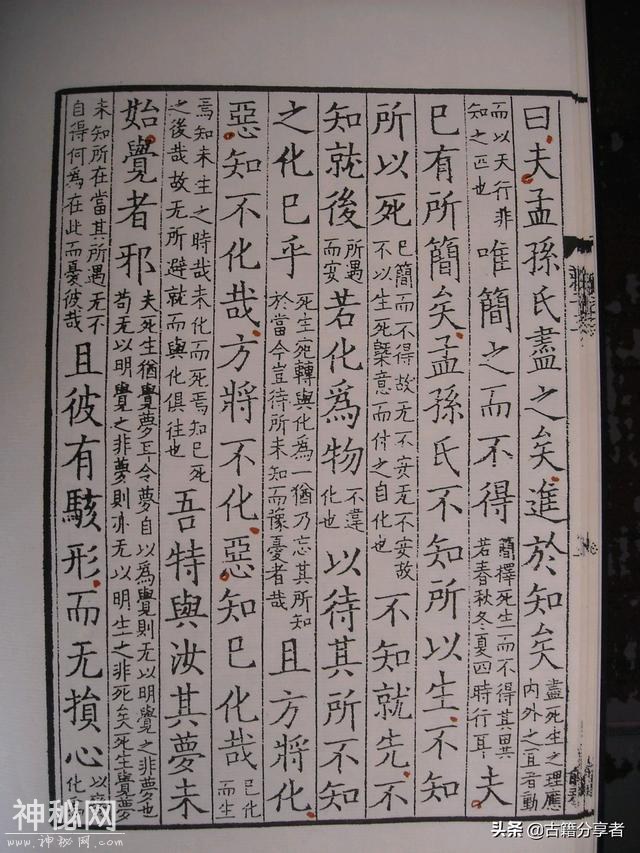 曰夫孟孫氏盡之矣進於知矣盡死生之理應内外之宜者動
而以天行非知之匹也唯簡之而不得簡擇死生而不得其異若春秋冬夏四時行耳夫
已有所簡矣孟孫氏不知所以生不知
所以死已簡而不得故无不安无不安故不以生死槩意而付之自化也不知就先不
知就後所遇而安若化爲物不違化也以待其所不知
之化已乎死生宛轉與化爲一猶乃忘其所知於當今豈待所未知而豫憂者哉且方將化
惡知不化哉方將不化惡知已化哉已化而生
焉知未生之時哉未化而死焉知已死之後哉故无所避就而與化俱往也吾特與汝其夢未
始覺者邪夫死生猶覺夢耳今夢自以爲覺則无以明覺之非夢也苟无以明覺之非夢則亦无以明生之非死矣死生覺夢
未知所在當其所遇无不自得何爲在此而憂彼哉且彼有駭形而无損心以變化
神秘网
www.神秘网.com
头条 @古籍分享者